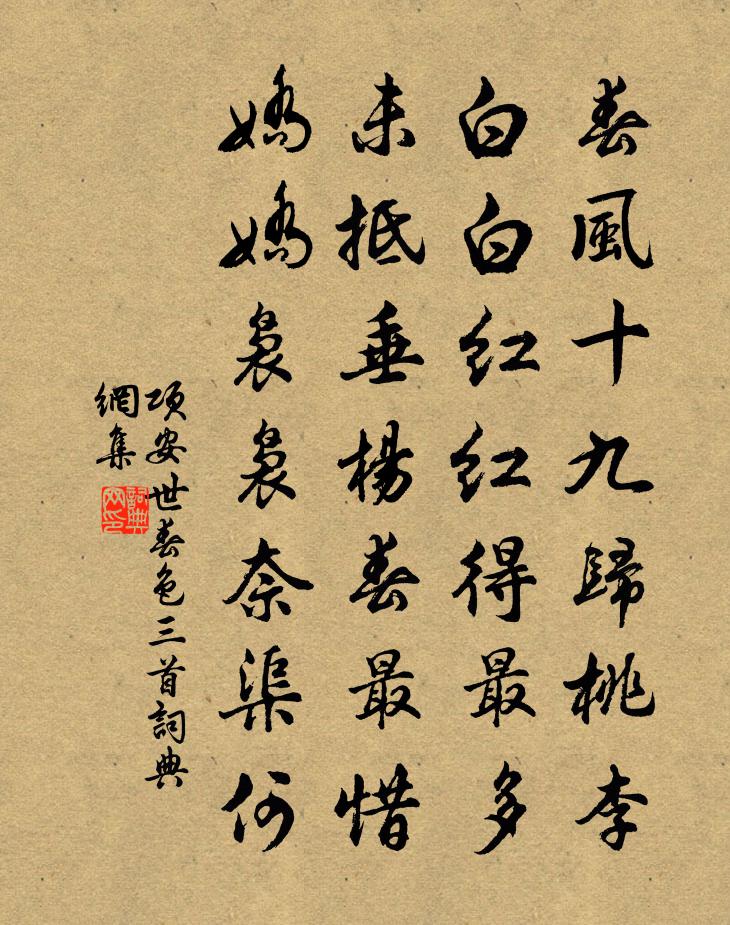 春風十九歸桃李
白白红红得最多
未抵垂楊春最惜
嬌嬌裊裊奈渠何
項安世春色三首詞典
網集
詞典網印